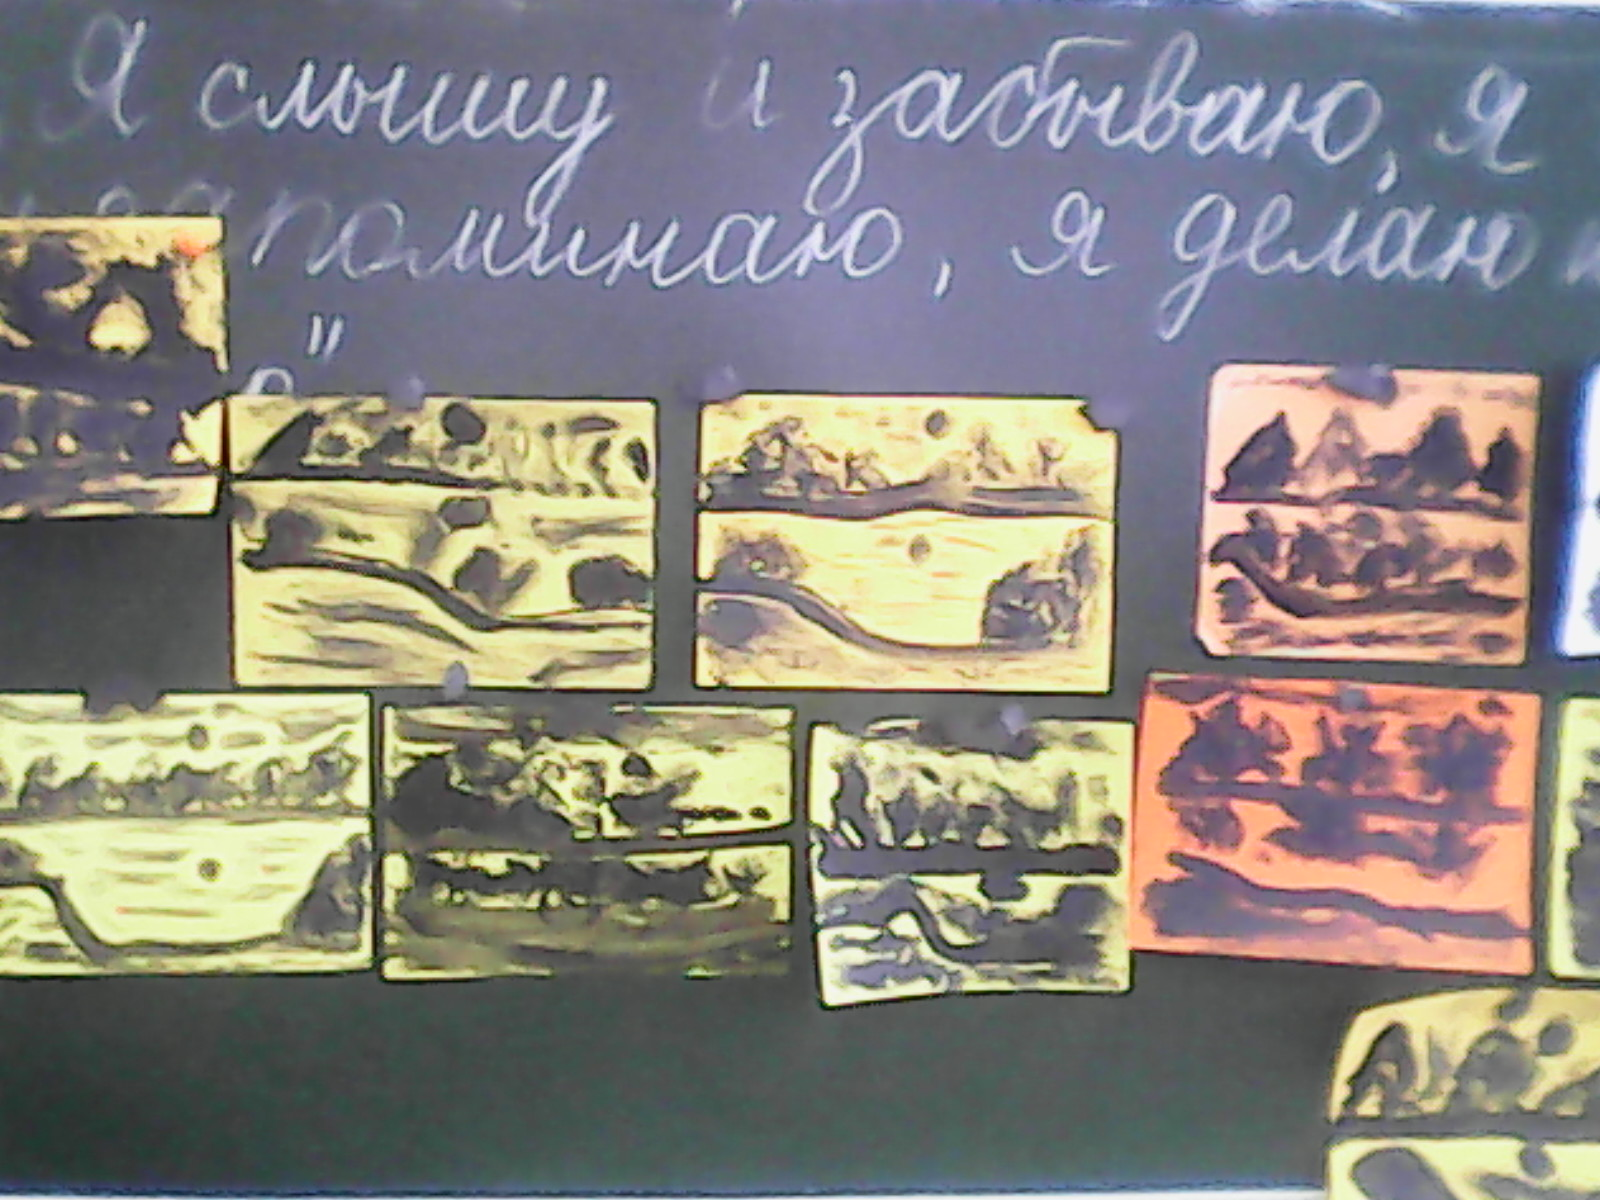 Я слышу и забываю, я
запоминаю, я делаю
"